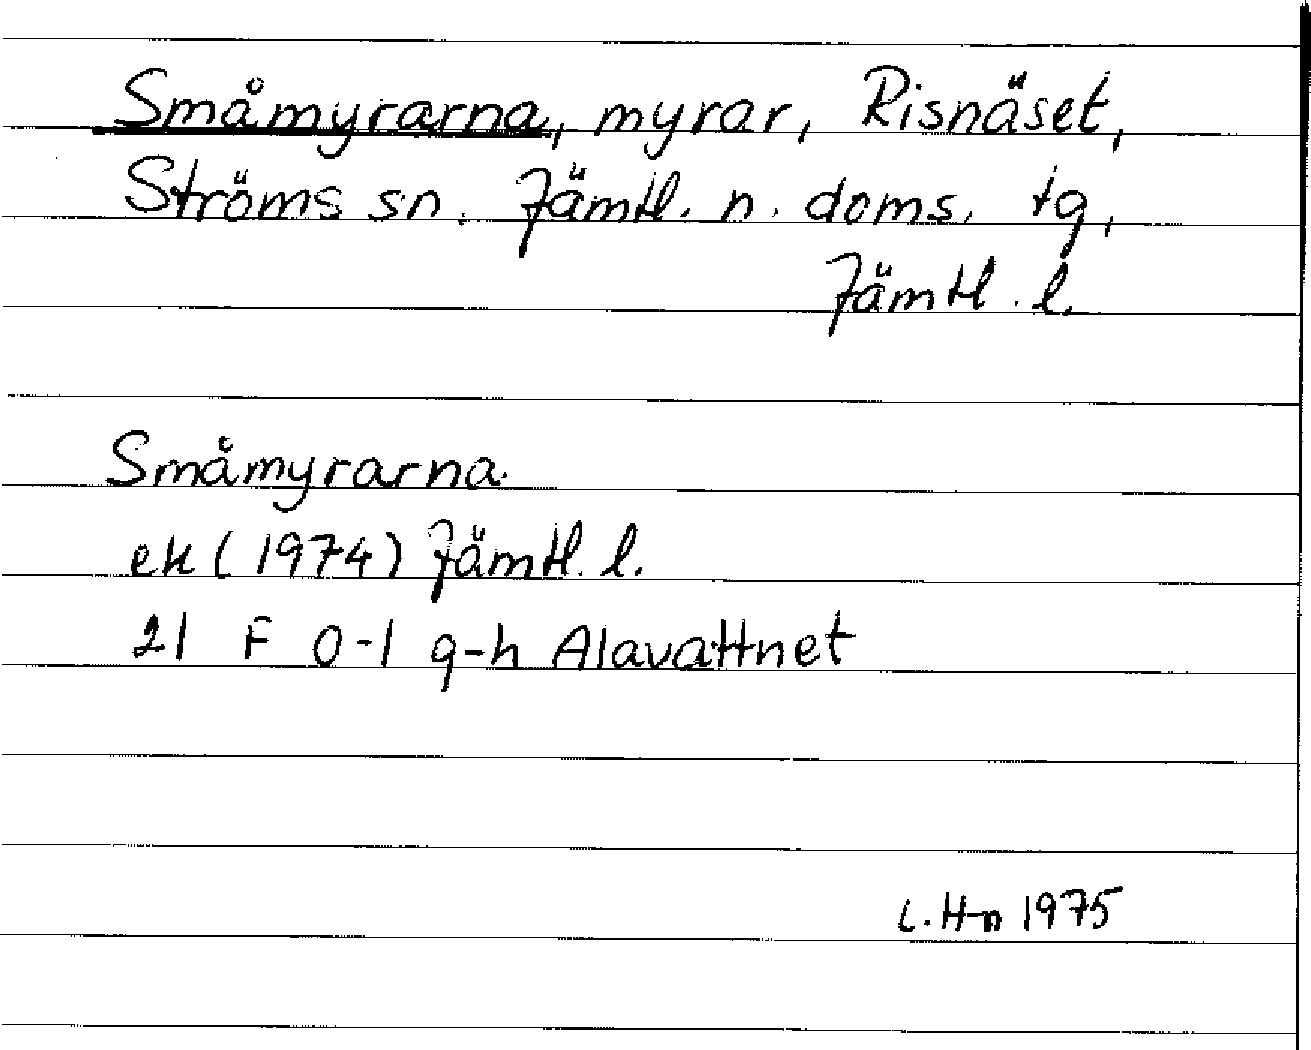 Småmyrarna, myrar, Risnäset,
Ströms sn. Jämtl. n. doms. tg,
Jämtl. l.
Småmyrarna
ek (1974) Jämtl. l.
21 F 0-1 g-h Alavattnet
L. H-n 1975